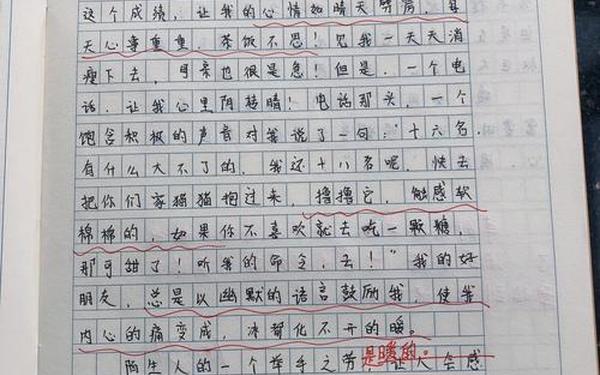 这个成绩，让我的心情如晴天劈雳，每
天心事重重，茶饭不思！见我一天天消
瘦下去，母亲也很是急！但是，一个电
话，让我心里阴转晴！电话那头，一个
饱含积极的声音对我说了一句："十六名，
有什么大不了的，我还十八名呢，快去
把你们家猫猫抱过来，撸撸它，触感软
棉棉的，如果你不喜欢就去吃一颗糖，
那可甜了！听我的命令，去！"我的好
朋友，总是以幽默的语言鼓励我，使我
内心的痛变成，冰都化不开的暖。
陌生人的一个举手之劳是暖的。让人会感